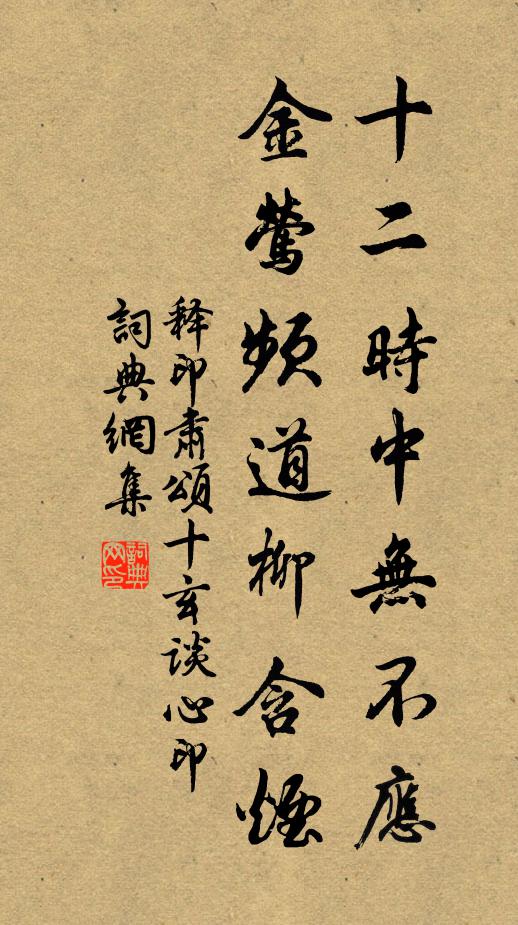 十二時中無不應
金鶯頻道柳含煙
释印肃頌十玄談心印
詞典網集
詞典网印